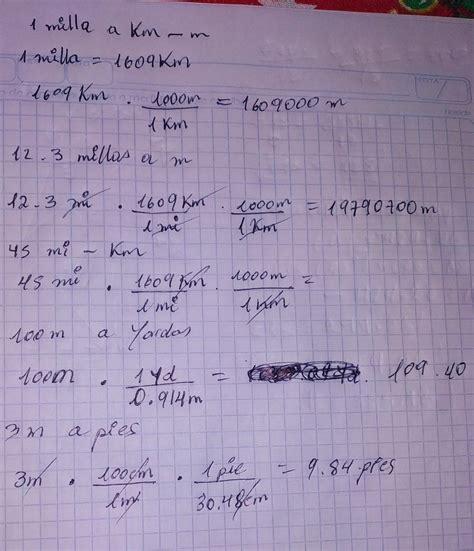 1 milla a Km - m
1 milla = 1609 Km
1609 Km . 1000m / 1 Km = 1609000 m
12.3 millas a m
12.3 mi . 1609 Km / 1 mi . 1000m / 1 Km = 19790700 m
45 mi - Km
45 mi . 1609 Km / 1 mi . 1000m / 1 Km =
100m a Yardas
100m . 1 Yd / 0.914 m = 109.40
3m a pies
3m . 100cm / 1m . 1 pie / 30.48cm = 9.84 pies